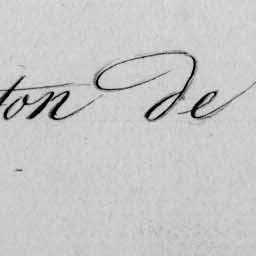 ton de